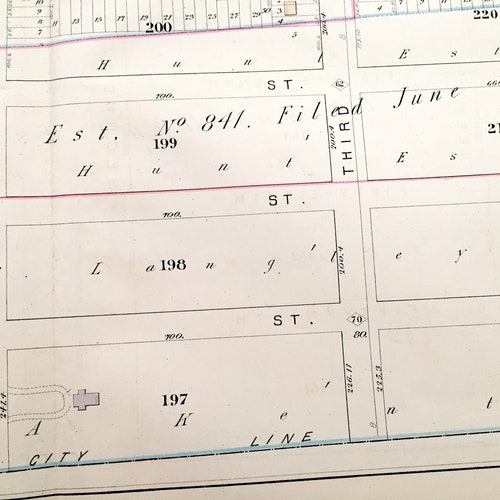 10
9
8
7
11 13 15 17 19 21 23 25 27 29 30
200
5
220
200.4
H u n t
E s
ST.
62
700.
Est. No 841. Filed June
199
H u n t
E s
200.4
THIRD
ST.
700.
198
L a n g l e y
200.4
ST.
70
80.
700.
226.11
225.3
241.4
197
A K e n t
CITY LINE
B